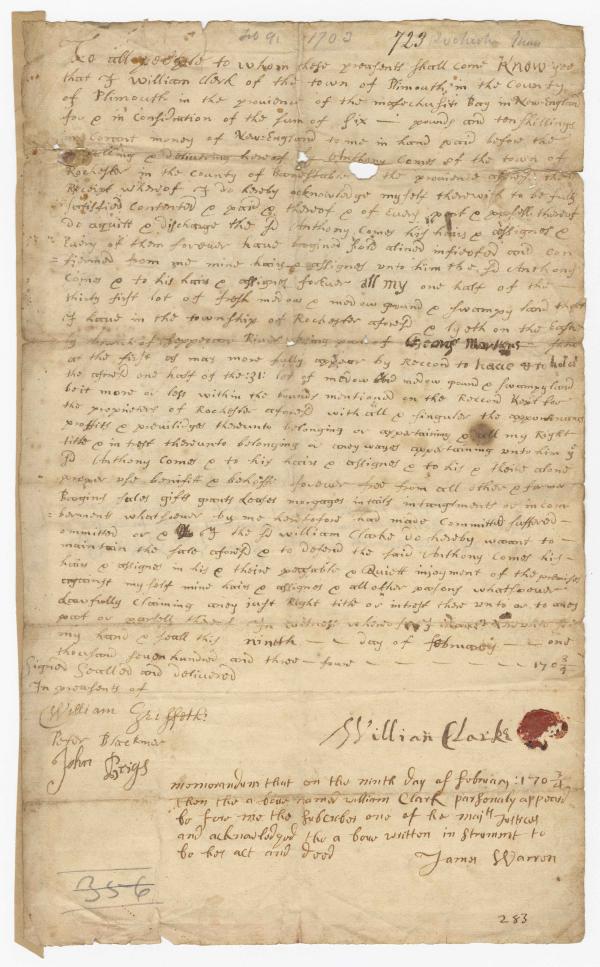 no 91 1703 723 Rochester Mass
To all people to whom these preasents shall come Know yee
that I William Clerk of the town of Plimouth in the County
of Plimouth in the province of the masechusits Bay in New England
for & in Consideration of the sum of six pounds and ten shillings
corant money of New England to me in hand paid before the
& delivering hereof Anthony Comes of the town of
Rochester in the County of Barnestable in the province aforesd the
Receipt whereof I do hereby acknowledge myself therewith to be fully
satisfied Contented & paid & thereof & of Every part & parsell thereof
do aquitt & discharge the sd Anthony Comes his hairs & assignes &
Every of them forever have bargined sold alined infeofed and con
=firmed from me mine hairs & assignes unto him the sd Anthony
Comes & to his hairs & assignes forever all my one half of the
thirty first lot of fresh medow & medow ground & swampy land that
I have in the township of Rochester aforesd & lyeth on the
River being part of George Martens
at the first as may more fully appear by Reccord to have & to hold
the aforesd one half of the 31 lot of medow and medow gound & swampy land
be it more or less within the bounds mentioned on the Reccord Kept for
the proprieters of Rochester aforesd with all & singuler the appurtinances
proffits & previlidges thereunto belonging or appertaining & all my Right
title & intrest thereunto belonging or aney wayes appertaining unto him y
sd Anthony Comes & to his hairs & assignes & to his & theire alone
proper use benifit & behoff forever free from all other & former
Bargins sales gifts grants Leases morgages intails intanglments or incom
berments whatsoever by me heretofore had made Committed suffered
ommitted or & I the sd William Clarke do hereby warant to
maintain the sale aforesd & to defend the said Anthony Comes his
hairs & assignes in his & theire peasable & Quiett injoyment of the premises
against my self mine hairs & assignes & all other parsons whatsoever
Lawfully Claiming aney just Right title or intrest there unto or to aney
part or parsell thereof In witness whereof I
my hand & seall this ninth day of february one
thousand seven hundred and three four 170¾
Signed Sealled and delivered
In preasents of
William Griffeth
Peter Blackmer
John Brigs
William Clarke
memorandum that on the ninth day of february: 170¾
then the a bove named William Clark parsonaly appeard
be fore me the subscriber one of her majts Justices
and acknowledged the a bove written in strument to
be his act and deed
James Warren
356
283